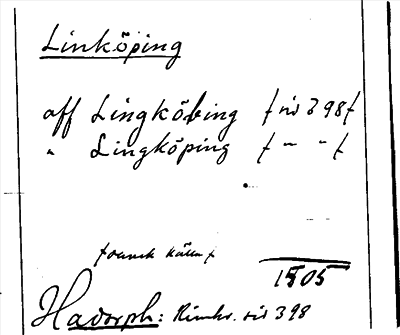 Linköping
aff Lingköbing / sid 398 /
" Lingköping / " " /
/ dansk källa /
1505
Hadorph: Rimkr. sid 398